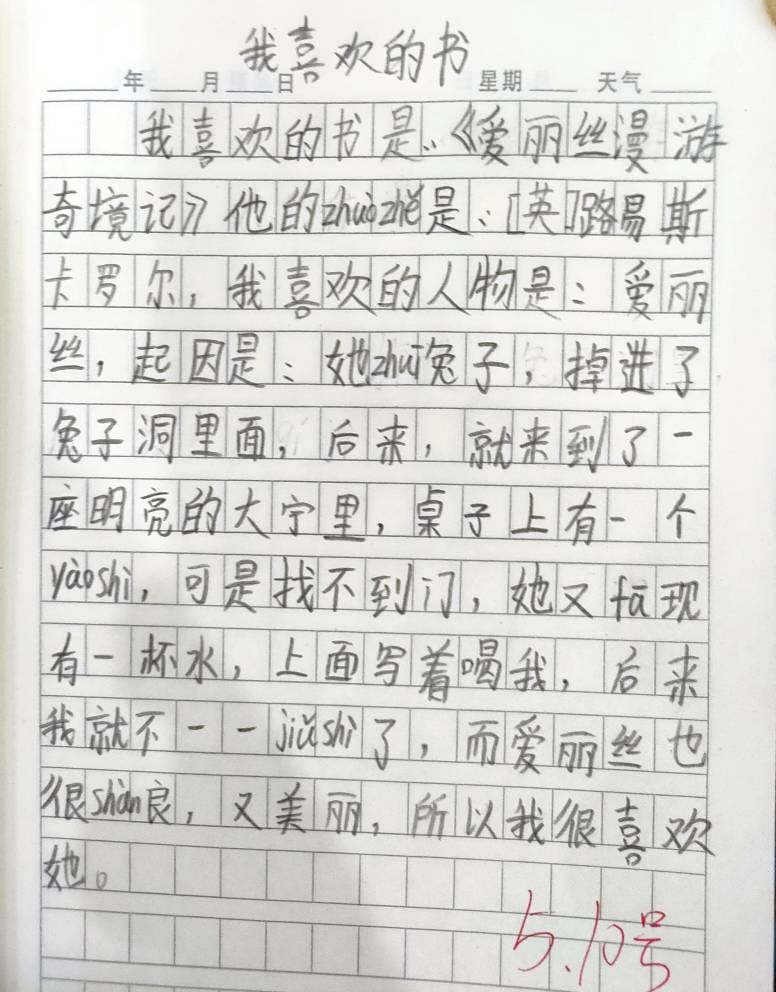 我喜欢的书
年 月 日 星期 天气
我喜欢的书是：《爱丽丝漫游
奇境记》他的zhuòzhě是：[英]路易斯
卡罗尔，我喜欢的人物是：爱丽
丝，起因是：她zhuī兔子，掉进了
兔子洞里面，后来，就来到了一
座明亮的大宁里，桌子上有一个
yàoshi，可是找不到门，她又fā现
有一杯水，上面写着喝我，后来
我就不一一jiǔshì了，而爱丽丝也
很shàn良，又美丽，所以我很喜欢
她。
5.10号